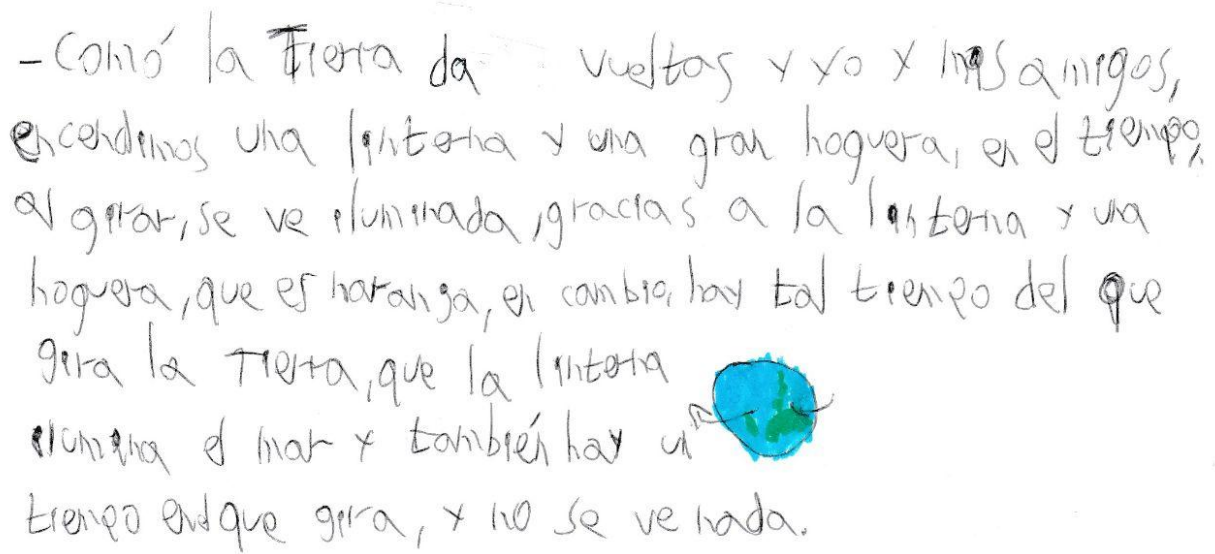 - Comó la Tierra da vueltas y yo y mis amigos,
encendimos una linterna y una gran hoguera, en el tiempo,
al girar, se ve iluminada, gracias a la linterna y una
hoguera, que es naranga, en cambio, hay tal tiempo del que
gira la Tierra, que la linterna
ilumina el mar y también hay un
tiempo en el que gira, y no se ve nada.